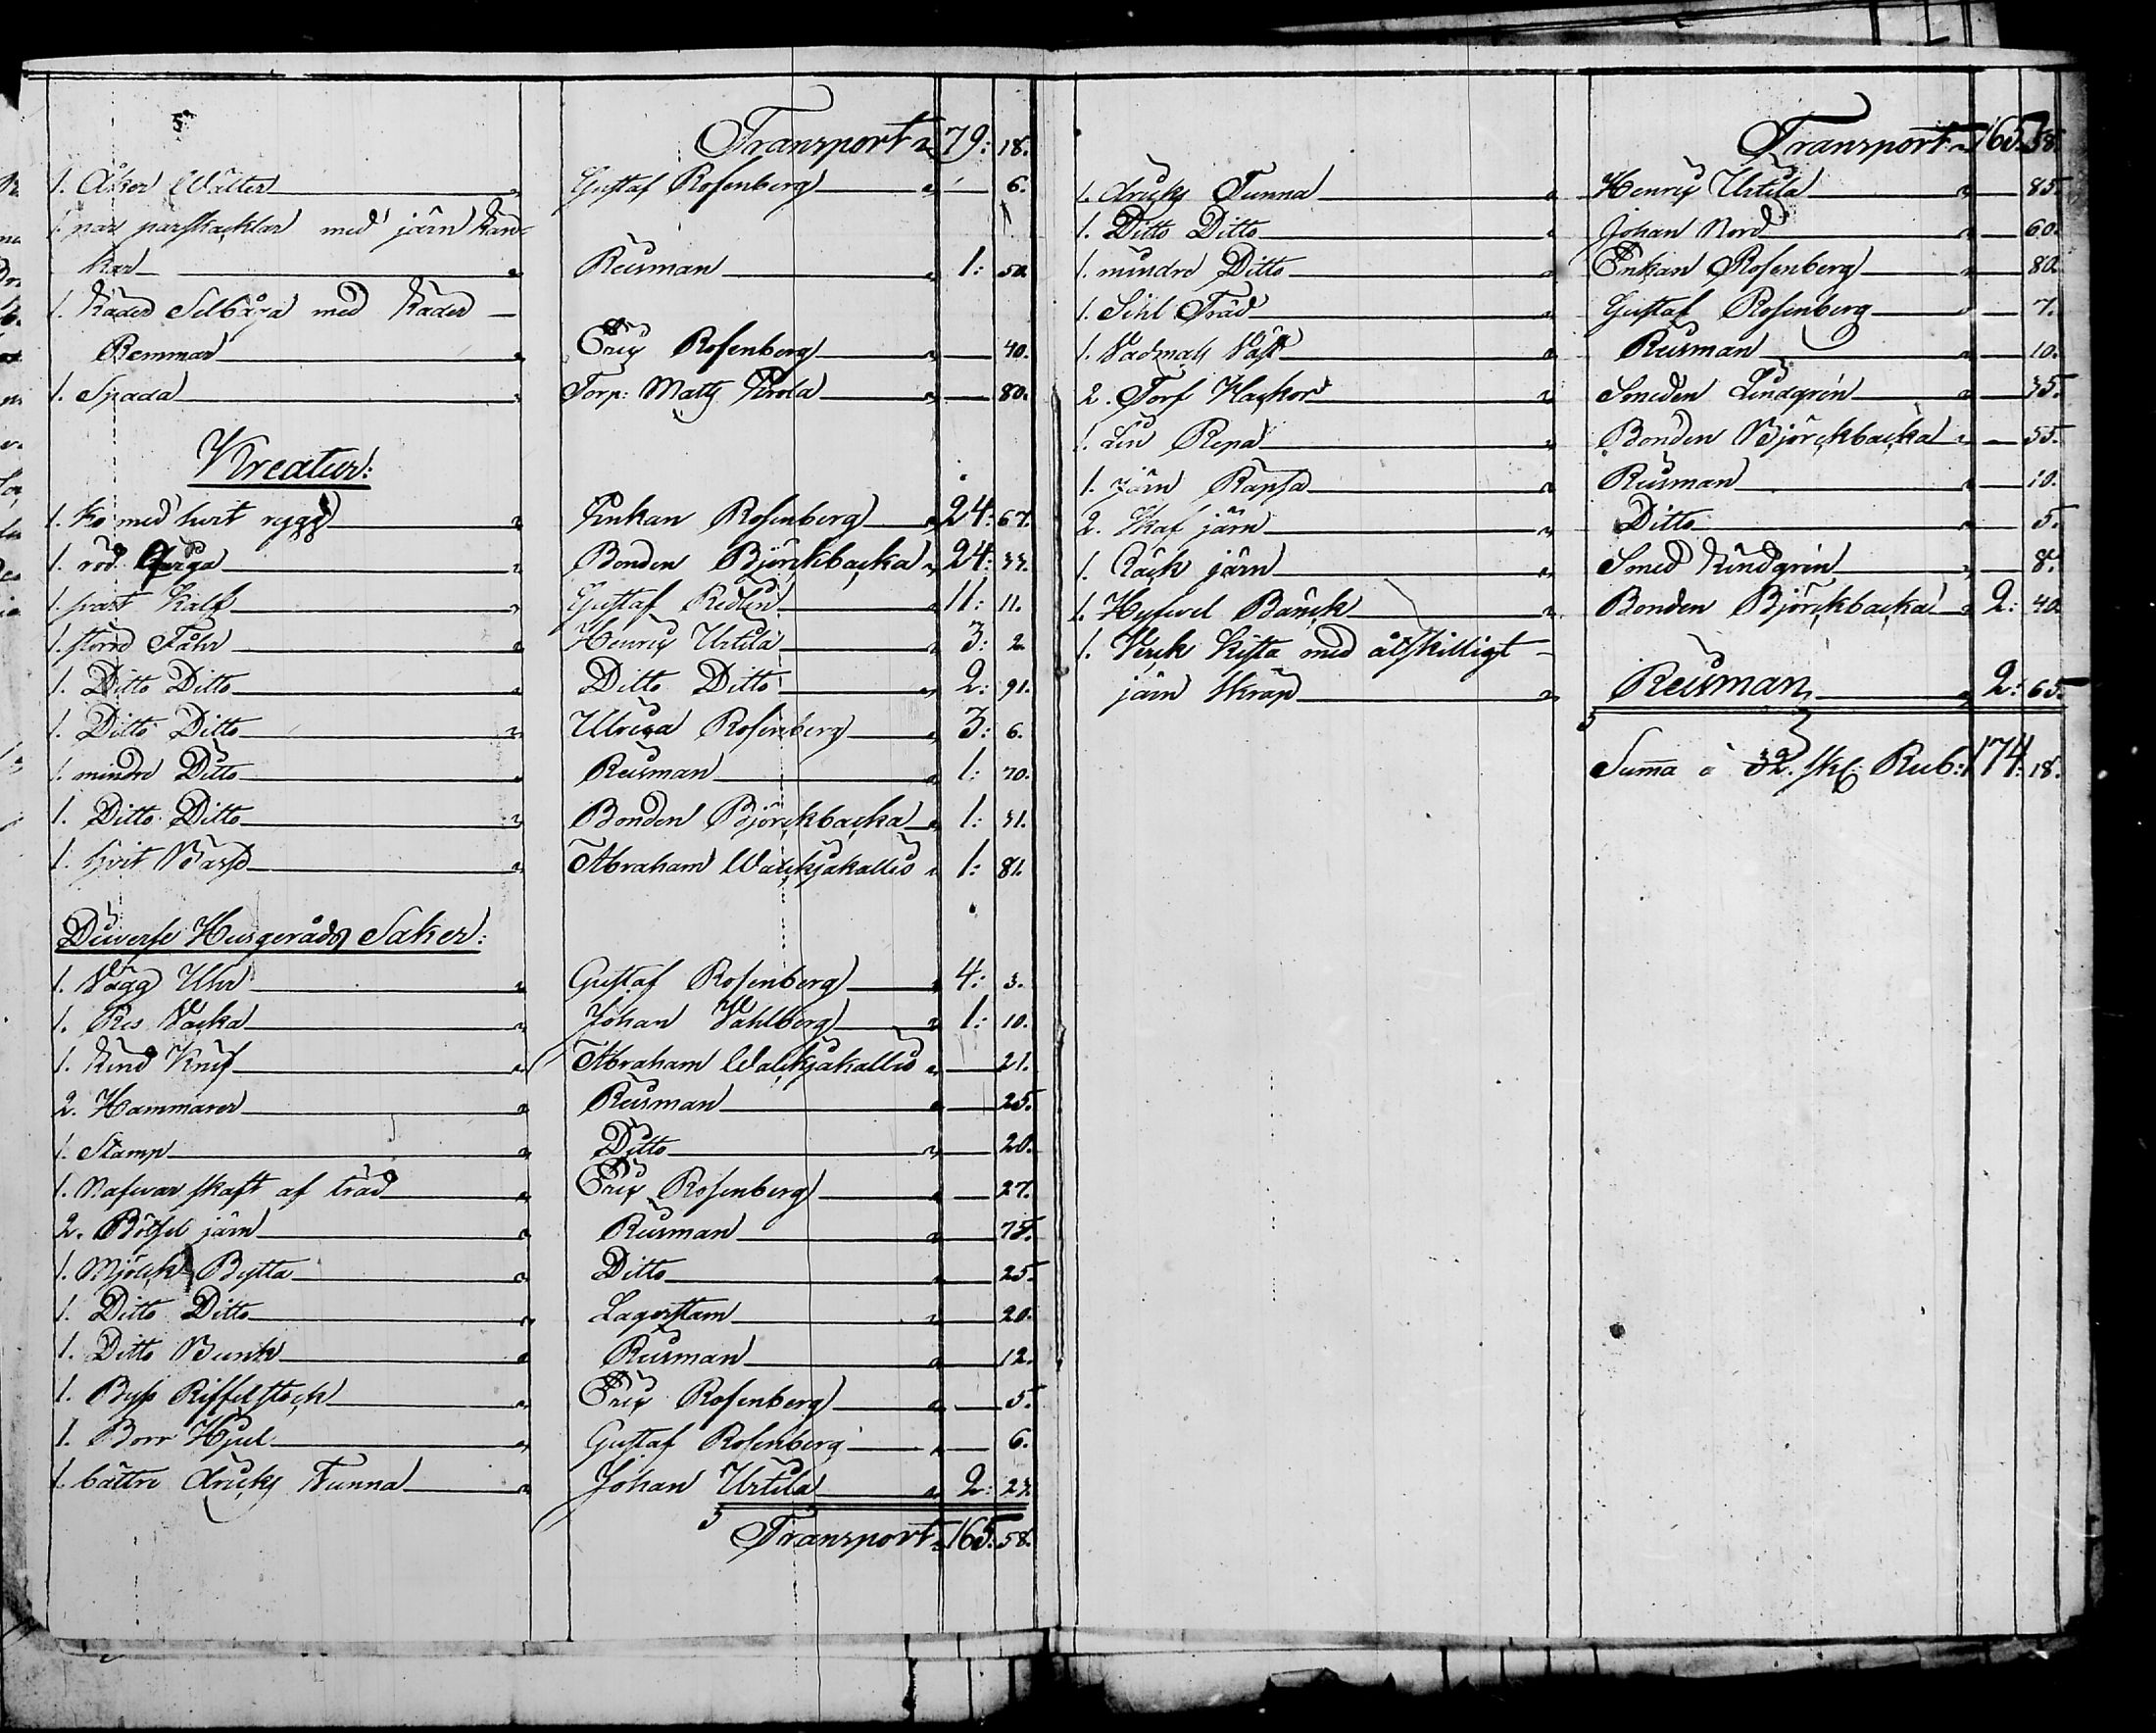 Transport 79: 18.
1. Åker Wälter Gustaf Rosenberg — 6.
1. par parskacklar med järn Kän-
kar Reisman 1: 50.
1. Räder Selbåga med Räder
Remmar Eric Rosenberg — 40.
1. Spada Torp: Matts Krola — 80.
Kreatur:
1. Ko med hvit rygg Enkan Rosenberg 24: 67.
1. röd Qviga Bonden Björckbacka 24: 33.
1. svart Kalf Gustaf Redlin 11: 11.
1. större Fåhr Henric Urtila 3: 2.
1. Ditto Ditto Ditto Ditto 2: 91.
1. Ditto Ditto Ulrica Rosenberg 3: 6.
1. mindre Ditto Reisman 1: 70.
1. Ditto Ditto Bonden Björckbacka 1: 31.
1. hvit Basse Abraham Walckjakallio 1: 81.
Diverse Husgeråds Saker:
1. Vägg Uhr Gustaf Rosenberg 4: 3.
1. Res Väcka Johan Vahlberg 1: 10.
1. Knif Abraham Walckjakallio — 21.
2. Hammarer Reisman — 25.
1. Stamp Ditto — 20.
1. Nafvar skaft af träd Eric Rosenberg — 27.
2. Bötsel järn Reisman — 75.
1. Mjölck Bytta Ditto — 25.
1. Ditto Ditto Lagerstam — 20.
1. Ditto Bunk Reisman — 12.
1. Byss Riffelstock Eric Rosenberg — 5.
1. Borr Hjul Gustaf Rosenberg — 6.
1. bättre dricks Tunna Johan Urtila 2: 27.
Transport 165: 58.
Transport 165: 58.
1. dricks Tunna Henric Urtila — 85.
1. Ditto Ditto Johan Nord — 60.
1. mindre Ditto Enkan Rosenberg — 80.
1. Sihl Träd Gustaf Rosenberg — 7.
1. Vadmals Väst Reisman — 10.
2. Torf Hackor Smeden Lindgrén — 35.
1. Lin Repa Bonden Björckbacka — 55.
1. järn Rapsa Reisman — 10.
2. Skaf järn Ditto — 5.
1. Räck järn Smed Lindgrén — 8.
1. Hyfvel Bänck Bonden Björckbacka 2: 40.
1. Verck Kista med åtskilligt
järn Skrap Reisman 2: 65.
Summa à 32. sk: Rub: 174: 18.